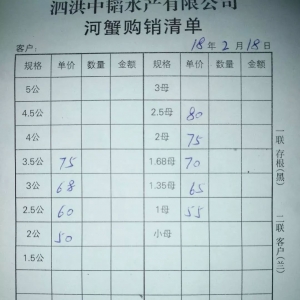 泗洪中韬水产有限公司
河蟹购销清单
客户: 18年2月18日
规格 单价 数量 金额 规格 单价 数量 金额
5公 3母
4.5公 2.5母 80
4公 2母 75
3.5公 75 1.68母 70
3公 68 1.35母 65
2.5公 60 1母 55
2公 50 小母
1.5公
一联存根(黑)
二联客户(兰)